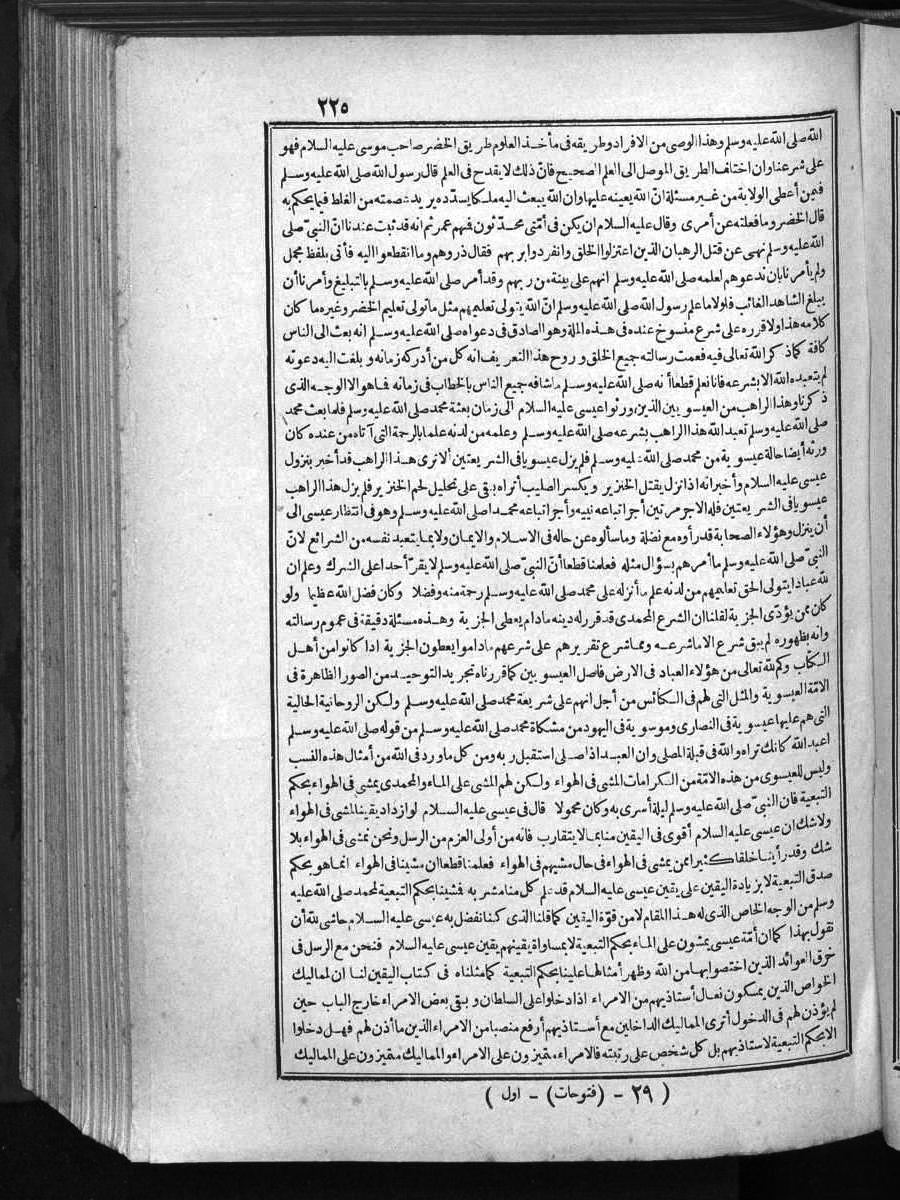 ٢٢٥
الله صلى الله عليه وسلم وهذا الوصى من الافراد وطريقه فى مأخذ العلوم طريق الخضر صاحب موسى عليه السلام فهو
على شرعنا وان اختلف الطريق الموصل الى العلم الصحيح فانّ ذلك لا يقدح فى العلم قال رسول الله صلى الله عليه وسلم
فيمن أعطى الولاية من غير مسئلة انّ الله يعينه عليها وان الله يبعث اليه ملكا يسدّده يريد عصمته من الغلط فيما يحكم به
قال الخضر وما فعلته عن أمرى وقال عليه السلام ان يكن فى أمّتى محدّثون فمنهم عمر ثم انه قد ثبت عندنا انّ النبىّ صلى
الله عليه وسلم نهى عن قتل الرهبان الذين اعتزلوا الخلق وانفردوا بربهم فقال ذروهم وما انقطعوا اليه فأتى بلفظ مجمل
ولم يأمرنا بان ندعوهم لعلمه صلى الله عليه وسلم انهم على بينة من ربهم وقد أمر صلى الله عليه وسلم بالتبليغ وأمرنا أن
يبلغ الشاهد الغائب فلولا ما علم رسول الله صلى الله عليه وسلم انّ الله يتولى تعليمهم مثل ما تولى تعليم الخضر وغيره ما كان
كلامه هذا ولا قرره على شرع منسوخ عنده فى هذه الملة وهو الصادق فى دعواه صلى الله عليه وسلم انه بعث الى الناس
كافة كما ذكر الله تعالى فيه فعمت رسالته جميع الخلق وروح هذا التعريف انه كل من أدركه زمانه وبلغت اليه دعوته
لم يتعبده الله الا بشرعه فانا نعلم قطعا أنه صلى الله عليه وسلم ما شافه جميع الناس بالخطاب فى زمانه فما هو الا الوجه الذى
ذكرنا وهذا الراهب من العيسويين الذين ورثوا عيسى عليه السلام الى زمان بعثة محمد صلى الله عليه وسلم فلما بعث محمد
صلى الله عليه وسلم تعبد الله هذا الراهب بشرعه صلى الله عليه وسلم وعلمه من لدنه علما بالرحمة التى آتاه من عنده كان
ورثه أيضا حالة عيسوية من محمد صلى الله عليه وسلم فلم يزل عيسويا فى الشريعتين ألا ترى هذا الراهب قد أخبر بنزول
عيسى عليه السلام وأخبر انه اذا نزل يقتل الخنزير ويكسر الصليب أتراه بقى على تحليل لحم الخنزير فلم يزل هذا الراهب
عيسويا فى الشريعتين فله الاجر مرتين أجر اتباعه نبيه وأجر اتباعه محمدا صلى الله عليه وسلم وهو فى انتظار عيسى الى
أن ينزل وهؤلاء الصحابة قد رأوه مع نضلة وما سألوه عن حاله فى الاسلام والايمان ولا بما يتعبد نفسه من الشرائع لانّ
النبىّ صلى الله عليه وسلم ما أمرهم بسؤال مثله فعلمنا قطعا أنّ النبىّ صلى الله عليه وسلم لا يقرّ أحدا على الشرك وعلم ان
لله عبادا يتولى الحق تعليمهم من لدنه علم ما أنزله على محمد صلى الله عليه وسلم رحمة منه وفضلا وكان فضل الله عظيما ولو
كان ممن يؤدّى الجزية لقلنا ان الشرع المحمدى قد قرر له دينه مادام يعطى الجزية وهذه مسئلة دقيقة فى عموم رسالته
وانه بظهوره لم يبق شرع الا ما شرعه ومما شرع تقريرهم على شرعهم ماداموا يعطون الجزية اذا كانوا من أهل
الكتاب وكم لله تعالى من هؤلاء العباد فى الارض فاصل العيسويين كما قررناه تجريد التوحيد من الصور الظاهرة فى
الامّة العيسوية والمثل التى لهم فى الكنائس من أجل انهم على شريعة محمد صلى الله عليه وسلم ولكن الروحانية الحالية
التى هم عليها عيسوية فى النصارى وموسوية فى اليهود من مشكاة محمد صلى الله عليه وسلم من قوله صلى الله عليه وسلم
اعبد الله كانك تراه والله فى قبلة المصلى وان العبد اذا صلى استقبل ربه ومن كل ما ورد فى الله من أمثال هذه النسب
وليس للعيسوى من هذه الامّة من الكرامات المشى فى الهواء ولكن لهم المشى على الماء والمحمدى يمشى فى الهواء بحكم
التبعية فان النبىّ صلى الله عليه وسلم ليلة أسرى به وكان محمولا قال فى عيسى عليه السلام لو ازداد يقينا لمشى فى الهواء
ولا شك ان عيسى عليه السلام أقوى فى اليقين منا بما لا يتقارب فانه من أولى العزم من الرسل ونحن نمشى فى الهواء بلا
شك وقد رأينا خلقا كثيرا ممن يمشى فى الهواء فى حال مشيهم فى الهواء فعلمنا قطعا ان مشينا فى الهواء انما هو بحكم
صدق التبعية لا بزيادة اليقين على يقين عيسى عليه السلام قد علم كل منا مشربه فشينا بحكم التبعية لمحمد صلى الله عليه
وسلم من الوجه الخاص الذى له هذا المقام لا من قوّة اليقين كما قلنا الذى كنا نفضل به عيسى عليه السلام حاشى لله أن
نقول بهذا كما ان أمّة عيسى يمشون على الماء بحكم التبعية لا بمساواة يقينهم يقين عيسى عليه السلام فنحن مع الرسل فى
خرق العوائد الذين اختصوا بها من الله وظهر أمثالها علينا بحكم التبعية كما مثلناه فى كتاب اليقين لنا ان لمماليك
الخواص الذين يمسكون نعال أستاذيهم من الامراء اذا دخلوا على السلطان وبقى بعض الامراء خارج الباب حين
لم يؤذن لهم فى الدخول أترى المماليك الداخلين مع أستاذيهم أرفع منصبا من الامراء الذين ما أذن لهم فهل دخلوا
الا بحكم التبعية لاستاذيهم بل كل شخص على رتبته فالامراء متميزون على الامراء والمماليك متميزون على المماليك
( ٢٩ - (فتوحات) - اول )